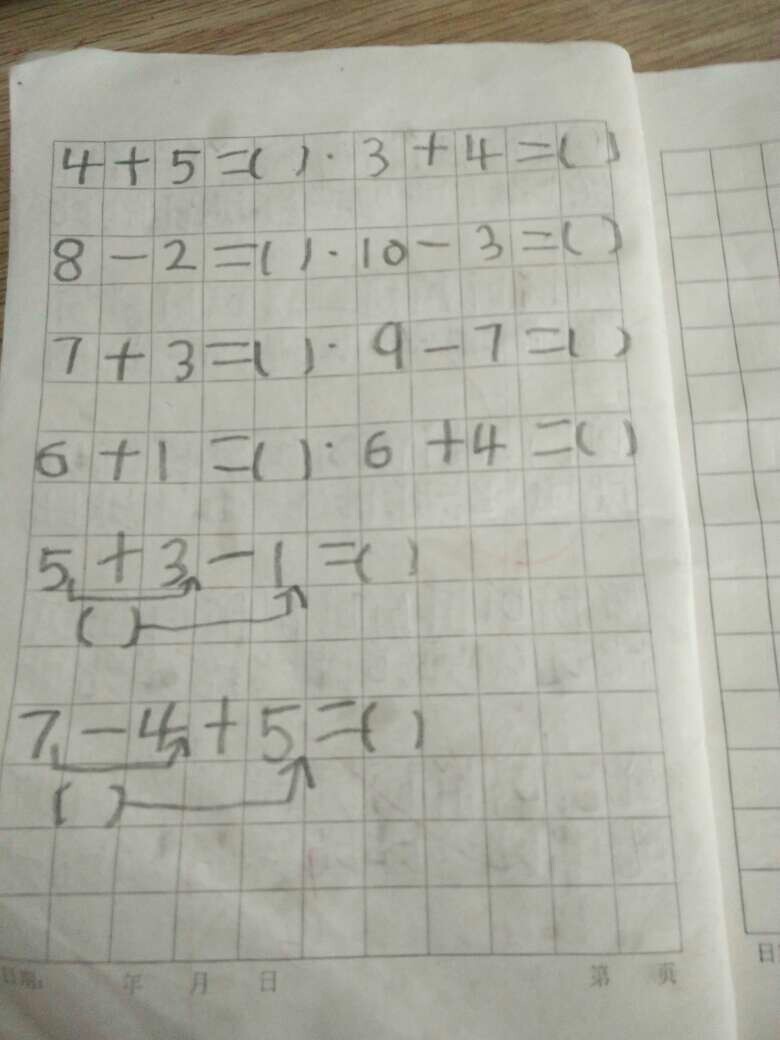 4+5=( )·3+4=( )
8-2=( )·10-3=( )
7+3=( )·9-7=( )
6+1=( )·6+4=( )
5+3-1=( )
( )
7-4+5=( )
( )
年 月 日 第 页